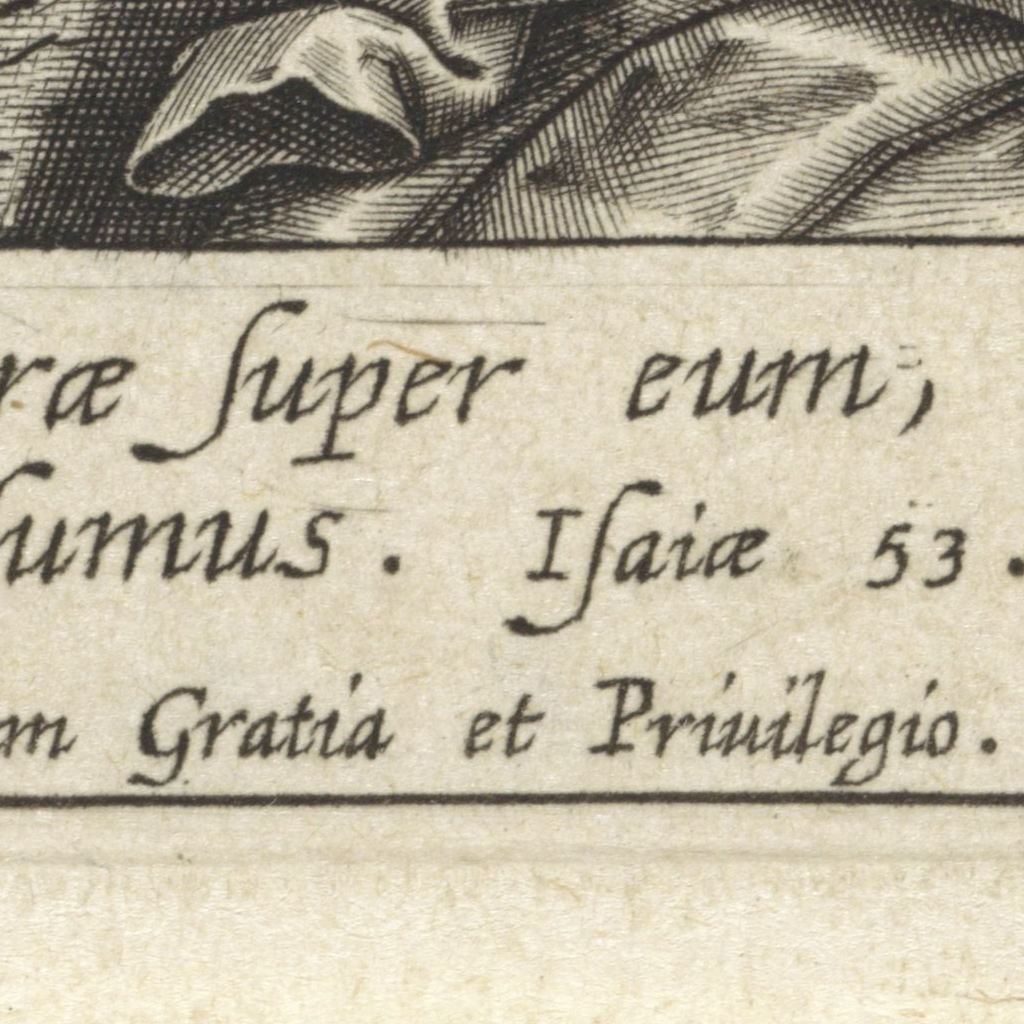 ræ ſuper eum,
ſumus. Iſaiæ 53.
m Gratia et Priuilegio.